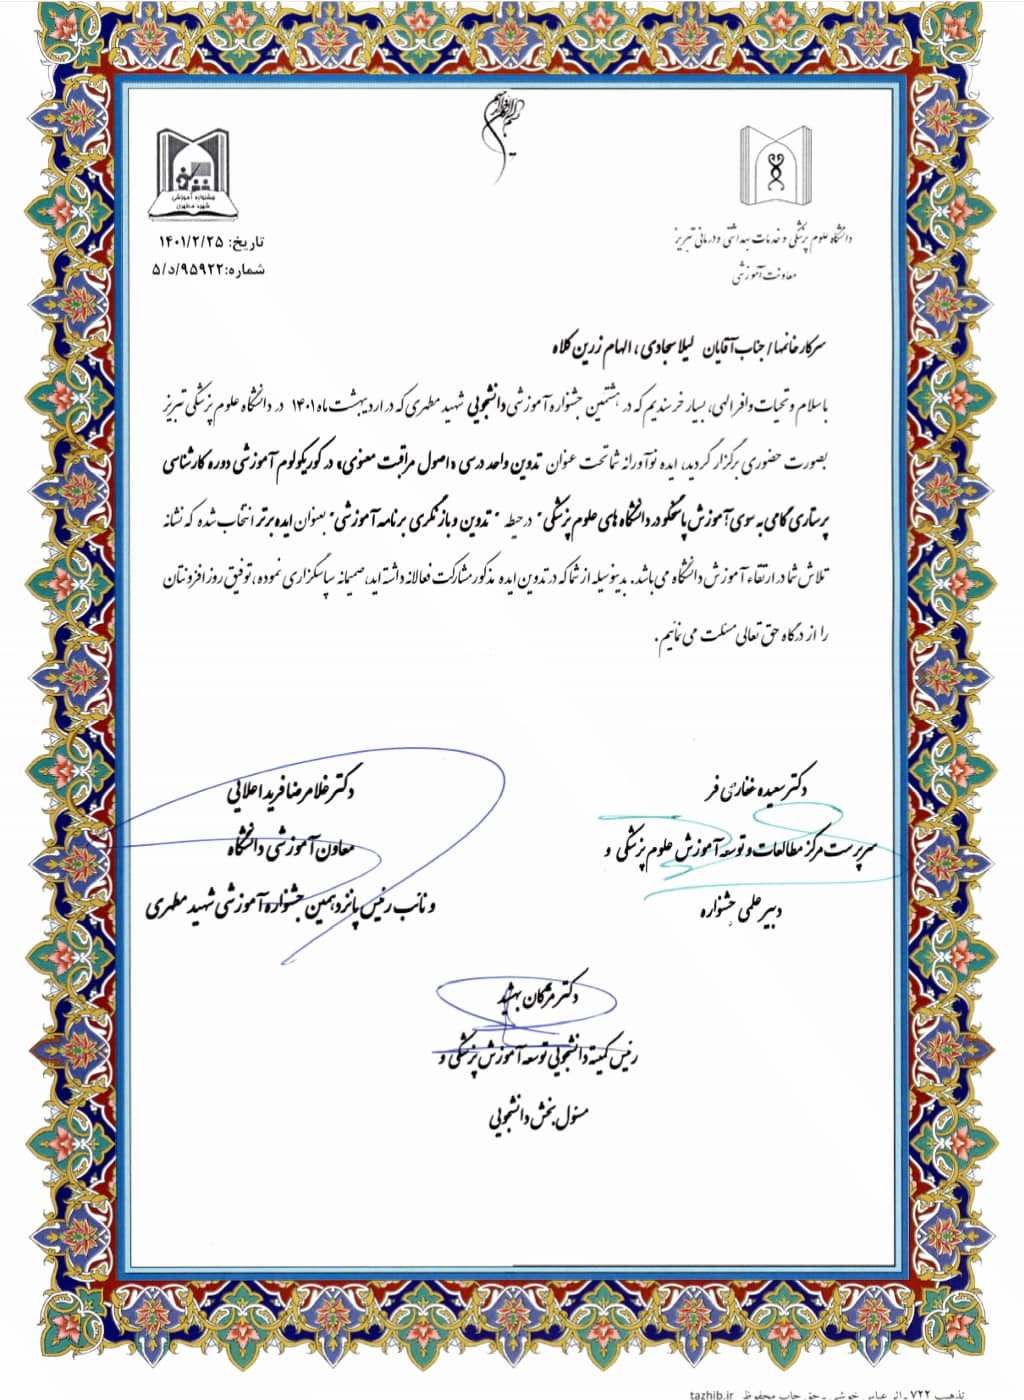 بسم الله الرحمن الرحیم
جشنواره آموزشی
شهید مطهری
تاریخ: ۱۴۰۱/۲/۲۵
شماره:۵/د/۹۵۹۲۲
دانشگاه علوم پزشکی و خدمات بهداشتی و درمانی تبریز
معاونت آموزشی
سرکار خانمها / جناب آقایان لیلا سجادی ، الهام زرین کلاه
با سلام و تحیات وافر الهی، بسیار خرسندیم که در هشتمین جشنواره آموزشی دانشجویی شهید مطهری که در اردیبهشت ماه ۱۴۰۱ در دانشگاه علوم پزشکی تبریز
بصورت حضوری برگزار گردید، ایده نوآورانه شما تحت عنوان تدوین واحد درسی «اصول مراقبت معنوی» در کوریکولوم آموزشی دوره کارشناسی
پرستاری گامی به سوی آموزش پاسخگو در دانشگاه های علوم پزشکی" در حیطه " تدوین و بازنگری برنامه آموزشی" بعنوان ایده برتر انتخاب شده که نشانه
تلاش شما در ارتقاء آموزش دانشگاه می باشد. بدینوسیله از شما که در تدوین ایده مذکور مشارکت فعالانه داشته اید، صمیمانه سپاسگزاری نموده، توفیق روزافزونتان
را از درگاه حق تعالی مسئلت می نمائیم.
دکتر سعیده غفاری فر
سرپرست مرکز مطالعات و توسعه آموزش علوم پزشکی و
دبیر علمی جشنواره
دکتر غلامرضا فرید اعلایی
معاون آموزشی دانشگاه
و نائب رئیس پانزدهمین جشنواره آموزشی شهید مطهری
دکتر مژگان بهشید
رئیس کمیته دانشجویی توسعه آموزش پزشکی و
مسئول بخش دانشجویی
تذهیب ۷۲۲ - اثر عباس خوشی - حق چاپ محفوظ tazhib.ir